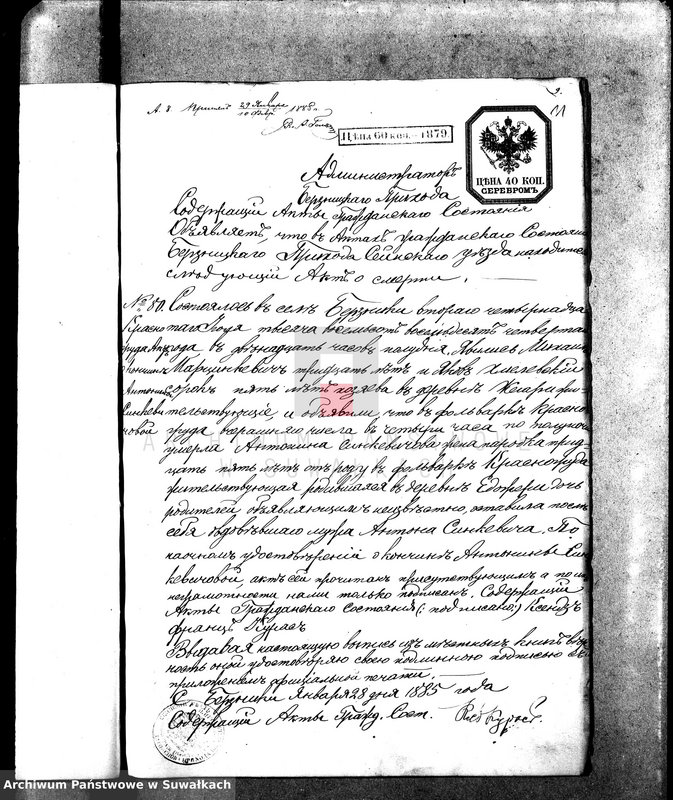 9.
11
29 Января
А. 8. 10 Февр. 1885 г.
ЦѢНА 60 КОП. 1879
ЦѢНА 40 КОП.
СЕРЕБРОМЪ
Администраторъ
Берзницкаго Прихода
Содержащій Акты Гражданскаго Состоянія
Объявляетъ, что въ Актахъ Гражданскаго Состоянія
Берзницкаго Прихода Сейнскаго уѣзда находится
слѣдующій Актъ о смерти.
№ 80. Состоялось въ селѣ Берзники втораго четырнадца
Красно таго года тысяча восемьсотъ восемьдесятъ четверта
груда года въ двѣнадцать часовъ полудня. Явились Михаилъ
Марцинкевичъ тридцать лѣтъ и Яковъ Хмелевскій
Антонина сорокъ пять лѣтъ хозяева въ деревнѣ жи
Синкеви тельствующіе, и объявили, что въ фольваркѣ Красно
човой груда вчерашняго числа въ четыри часа по полудни
умерла Антонина Синкевичова жена паробка трид
цать пять лѣтъ отъ роду въ фольваркѣ Красногруда
жительствующая родившаяся въ деревнѣ дочь
родителей объявляющимъ неизвѣстно, оставила послѣ
себя овдовѣвшаго мужа Антона Синкевича. По
наочномъ удостовѣреніи о кончинѣ Антонины Син
кевичовой, актъ сей прочитанъ присутствующимъ а по ихъ
неграмотности нами только подписанъ. Содержащій
Акты Гражданскаго Состоянія (: подписано:) Ксендзъ
Францъ
Выдавая настоящую выпись изъ метыкныхъ книгъ вѣр
ность оной удостовѣряю своею подлинною подписью съ
приложеніемъ официальной печати.
С. Берзники Января 28 дня 1885 года
Содержащій Акты Гражд. Сост.
ARCHIWUM PAŃSTWOWE
Archiwum Państwowe w Suwałkach